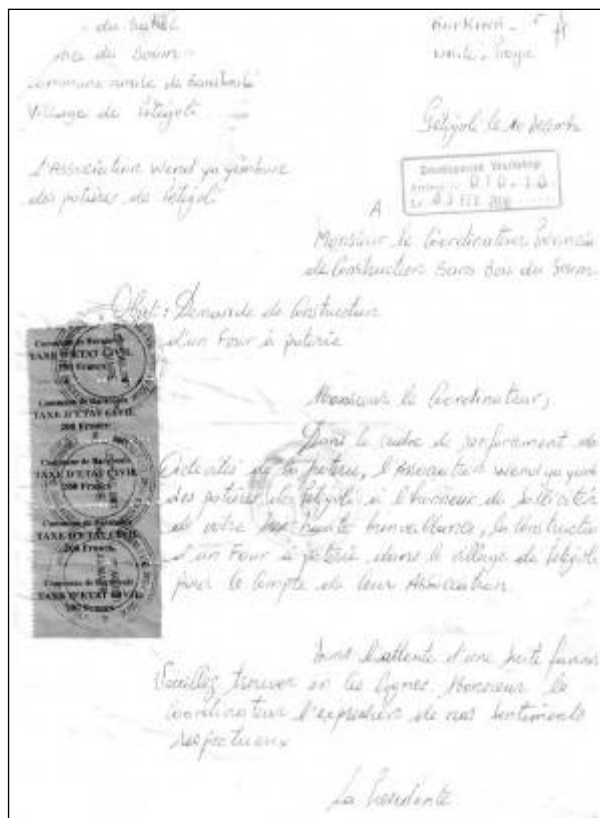 du Sahel
du Soum
Commune rurale de
Village de Petégoli
Burkina
Petégoli le 10
L'Association Wend ya
des potières de Petégoli
Development Workshop
010.10
FEV
A
Monsieur le Coordinateur
de Construction Sans Bois du Soum
Objet : Demande de Construction
d'un Four à poterie
Commune de
TAXE D'ETAT CIVIL
200 Francs
Commune de
TAXE D'ETAT CIVIL
200 Francs
Commune de
TAXE D'ETAT CIVIL
200 Francs
Commune de
TAXE D'ETAT CIVIL
200 Francs
Commune de
TAXE D'ETAT CIVIL
200 Francs
Monsieur le Coordinateur,
Dans le cadre de renforcement de
de la poterie, l'Association Wend ya
des potières de Petégoli a l'honneur de solliciter
de votre haute bienveillance, la
d'un Four à poterie dans le village de Petégoli
pour le Compte de leur Association.
Dans l'attente d'une suite
Veuillez trouver en ces lignes Monsieur le
Coordinateur l'expression de nos sentiments
respectueux
La Présidente